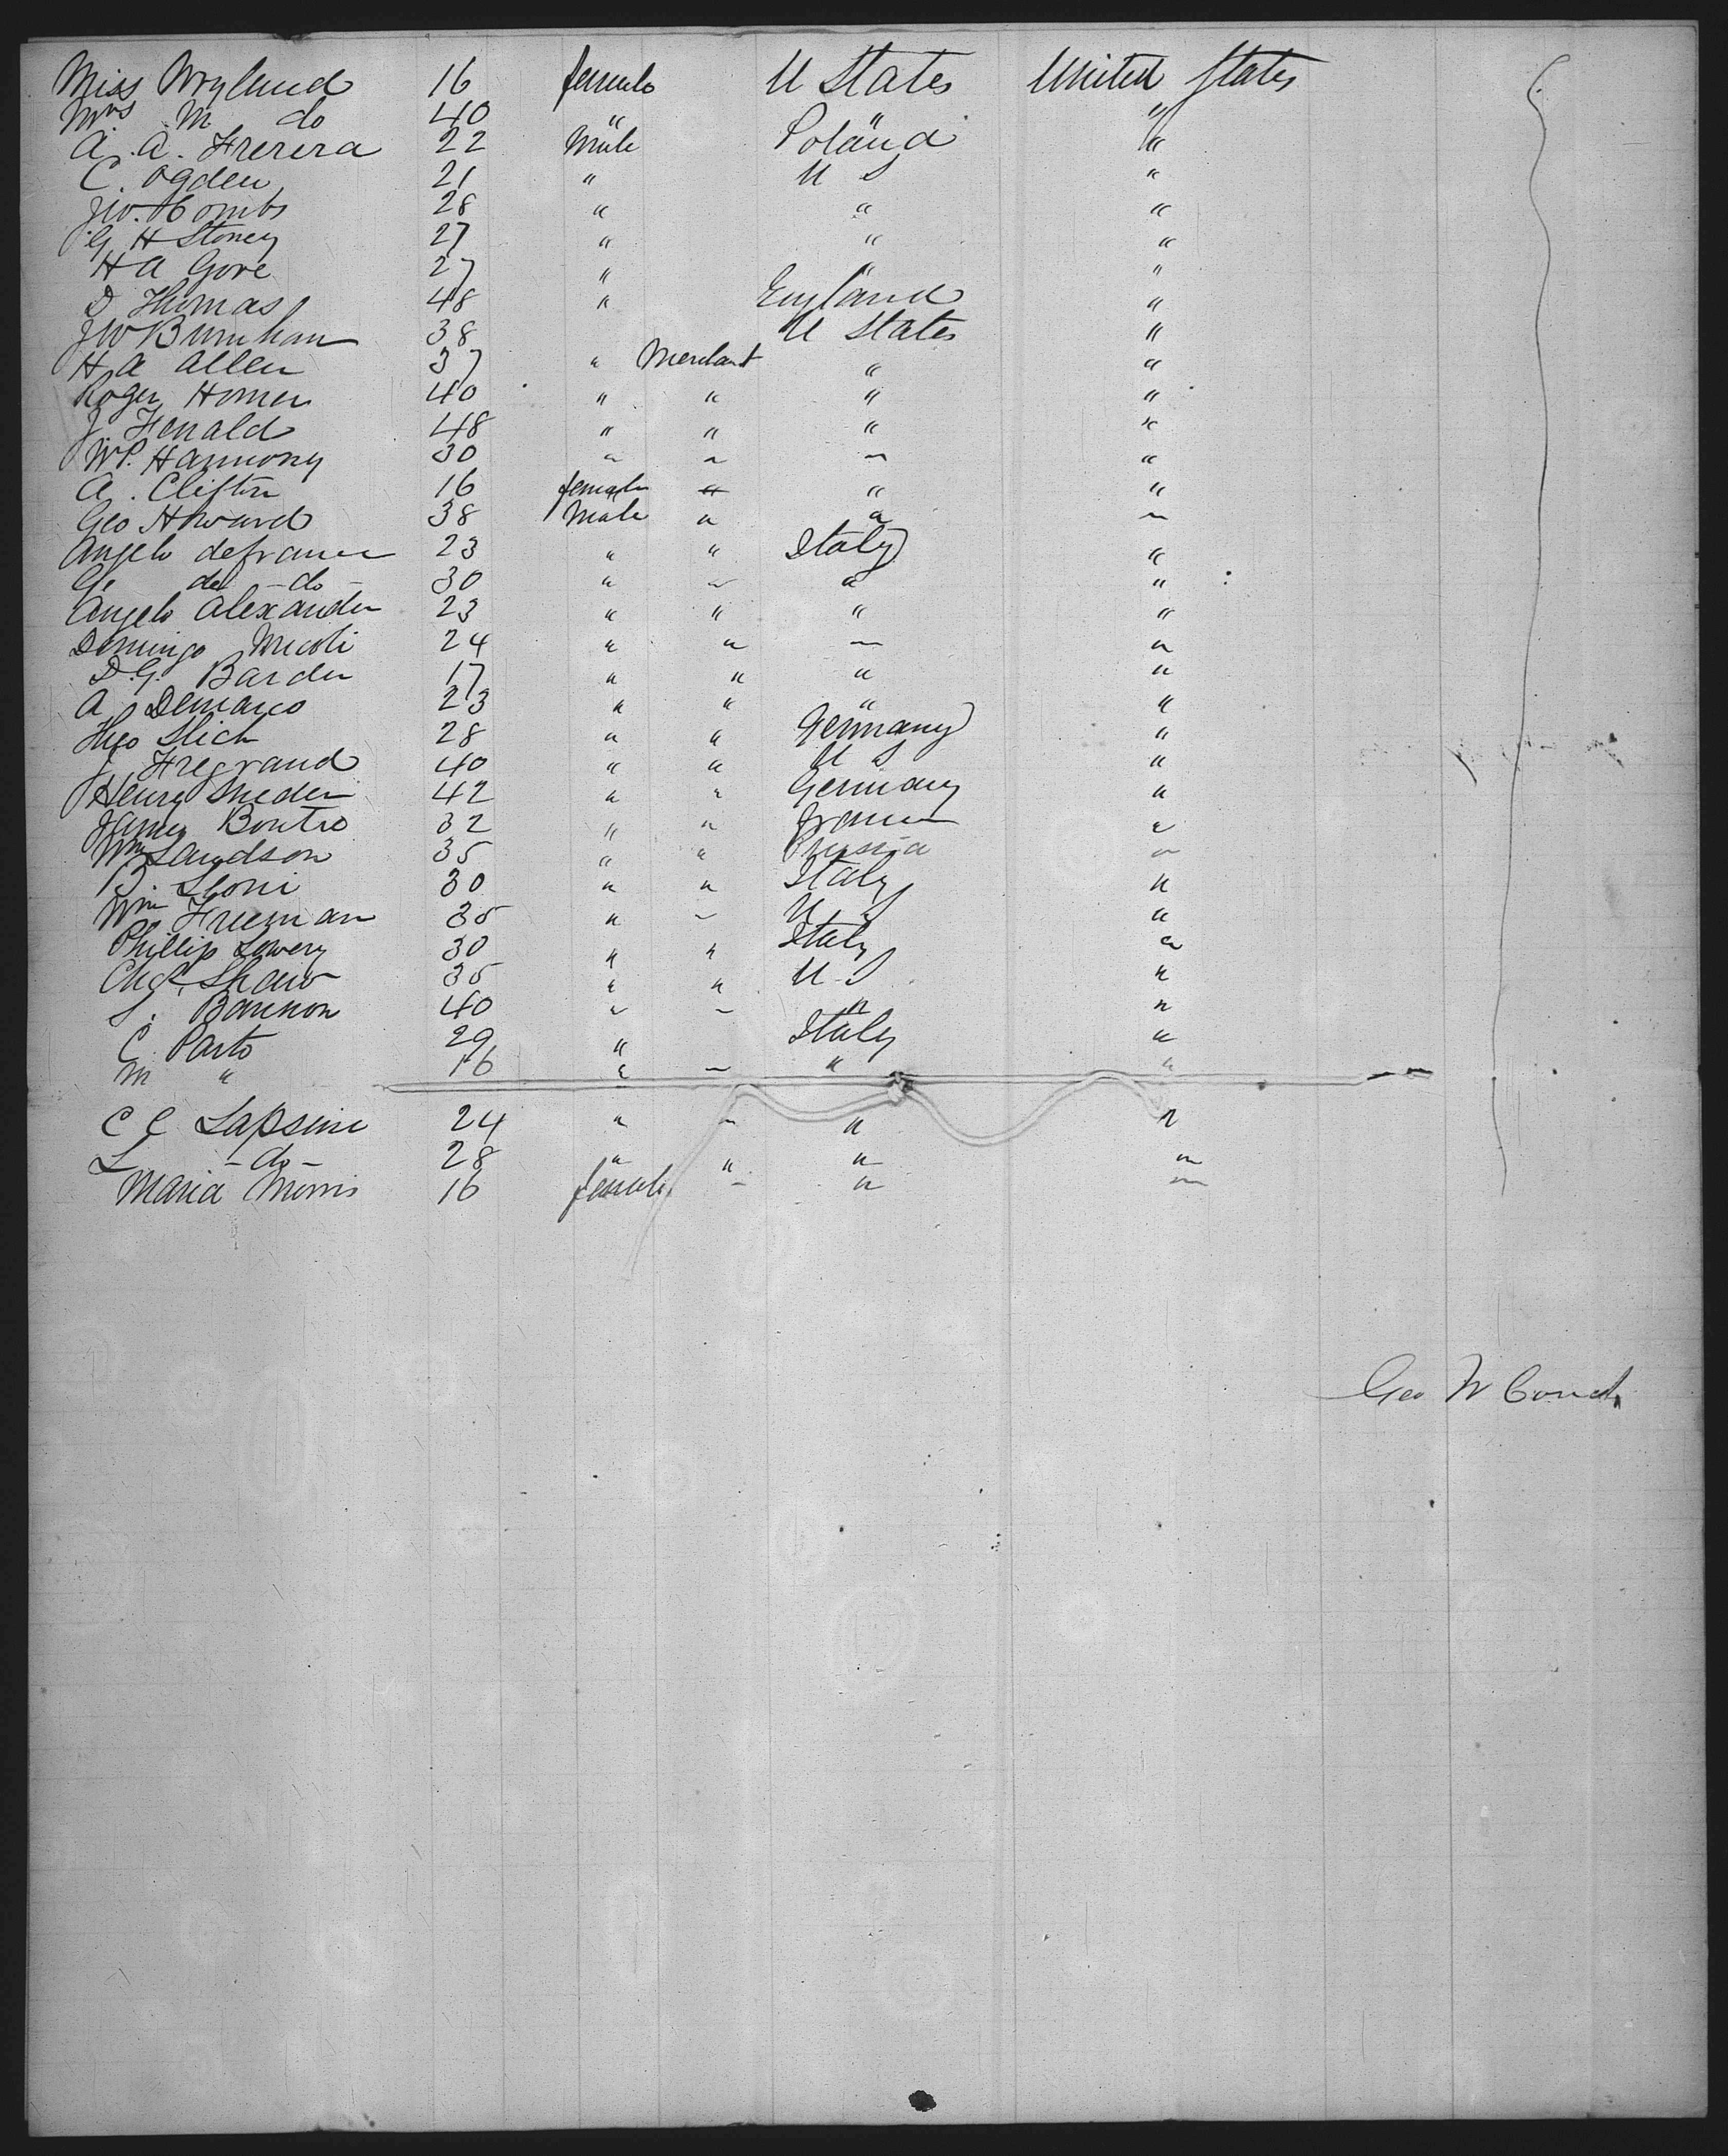 Miss Wylund 16 female U States United States
Mrs M do 40 " " "
A. A. Frerera 22 Male Poland "
C. Ogden 21 " U S "
J W. Combs 28 " " "
G H Stoney 27 " " "
H A Gove 27 " " "
D Thomas 48 " England "
J W Burnham 38 U States "
H A Allen 37 " Merchant " "
Roger Homer 40 " " " "
J Fenald 48 " " " "
W P. Hammony 30 " " " "
A. Clifton 16 female " " "
Geo Howard 38 Male " " "
Angelo defrance 23 " " Italy "
G. de - do - 30 " " " "
Angelo Alexander 23 " " " "
Domingo Nicoli 24 " " " "
D. G. Barden 17 " " " "
A Demarco 23 " " " "
Theo Slich 28 " " Germany "
J. Fregrand 40 " " U S "
Henry Sneden 42 " " Germany "
James Boutro 32 " " France "
Wm Landson 35 " " Prussia "
B. Leoni 30 " " Italy "
Wm Freeman 35 " " U. S "
Phillip Lowery 30 " " Italy "
Chas. Shaw 35 " " U. S "
S. Bannon 40 " " " "
C. Parto 29 " Italy "
M " 16 " " " "
C C Lapsine 24 " " " "
L - do - 28 " " " "
Maria Morris 16 female " " "
Geo W Couch